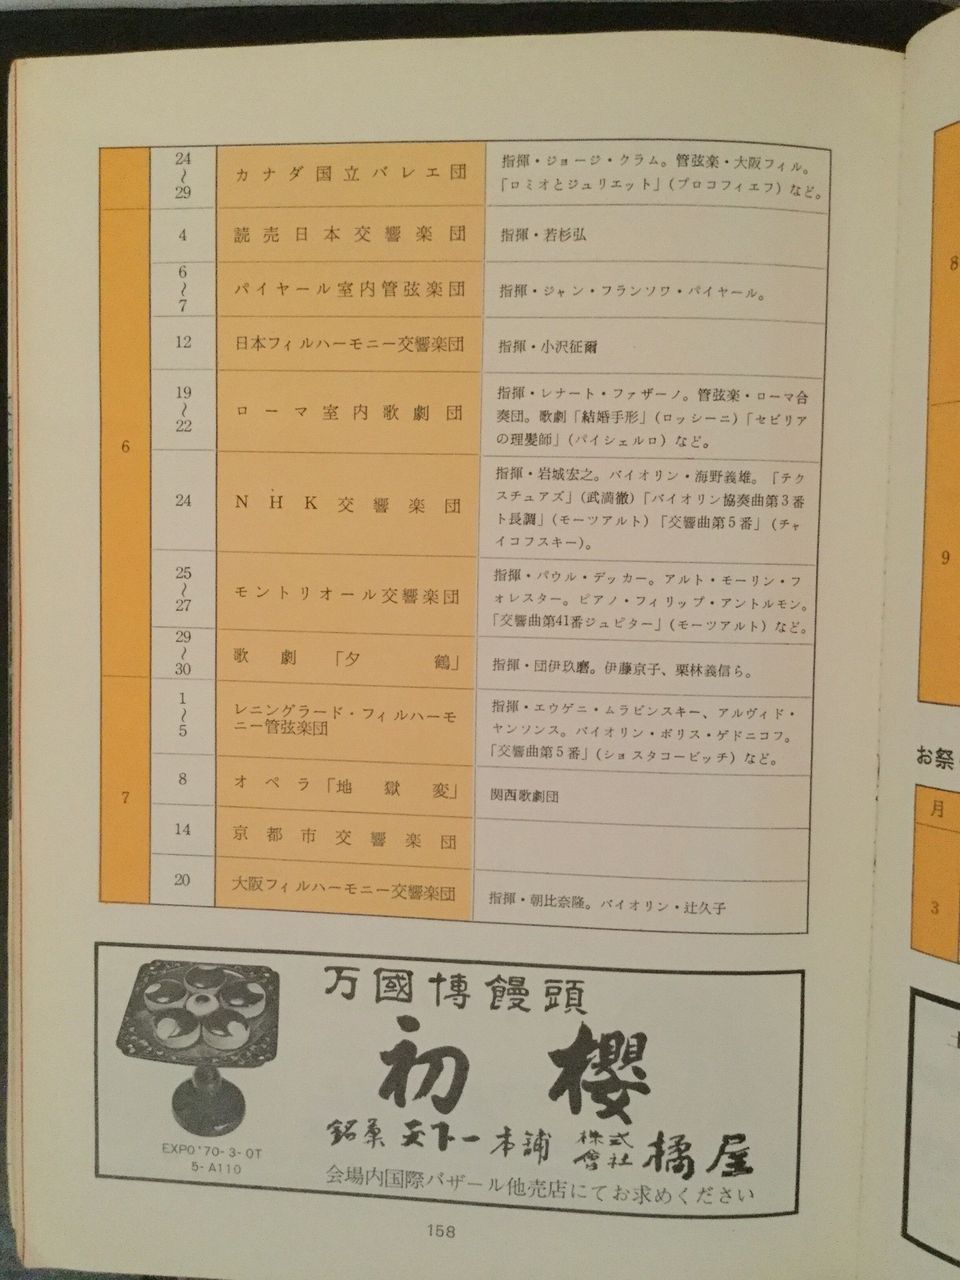 24
〜
29
カナダ国立バレエ団
指揮・ジョージ・クラム。管弦楽・大阪フィル。
「ロミオとジュリエット」(プロコフィエフ)など。
6
4
読売日本交響楽団
指揮・若杉弘
6
〜
7
パイヤール室内管弦楽団
指揮・ジャン・フランソワ・パイヤール。
12
日本フィルハーモニー交響楽団
指揮・小沢征爾
19
〜
22
ローマ室内歌劇団
指揮・レナート・ファザーノ。管弦楽・ローマ合
奏団。歌劇「結婚手形」(ロッシーニ)「セビリア
の理髪師」(パイシェルロ)など。
24
NHK交響楽団
指揮・岩城宏之。バイオリン・海野義雄。「テク
スチュアズ」(武満徹)「バイオリン協奏曲第3番
ト長調」(モーツアルト)「交響曲第5番」(チャ
イコフスキー)。
25
〜
27
モントリオール交響楽団
指揮・パウル・デッカー。アルト・モーリン・フ
ォレスター。ピアノ・フィリップ・アントルモン。
「交響曲第41番ジュピター」(モーツアルト)など。
29
〜
30
歌劇「夕鶴」
指揮・団伊玖磨。伊藤京子、栗林義信ら。
7
1
〜
5
レニングラード・フィルハーモ
ニー管弦楽団
指揮・エウゲニ・ムラビンスキー、アルヴィド・
ヤンソンス。バイオリン・ボリス・ゲドニコフ。
「交響曲第5番」(ショスタコービッチ)など。
8
オペラ「地獄変」
関西歌劇団
14
京都市交響楽団
20
大阪フィルハーモニー交響楽団
指揮・朝比奈隆。バイオリン・辻久子
万國博饅頭
初櫻
銘菓天下一本舗 株式會社 橘屋
会場内国際バザール他売店にてお求めください
EXPO'70-3-OT
5-A110
158
8
9
お祭
月
3